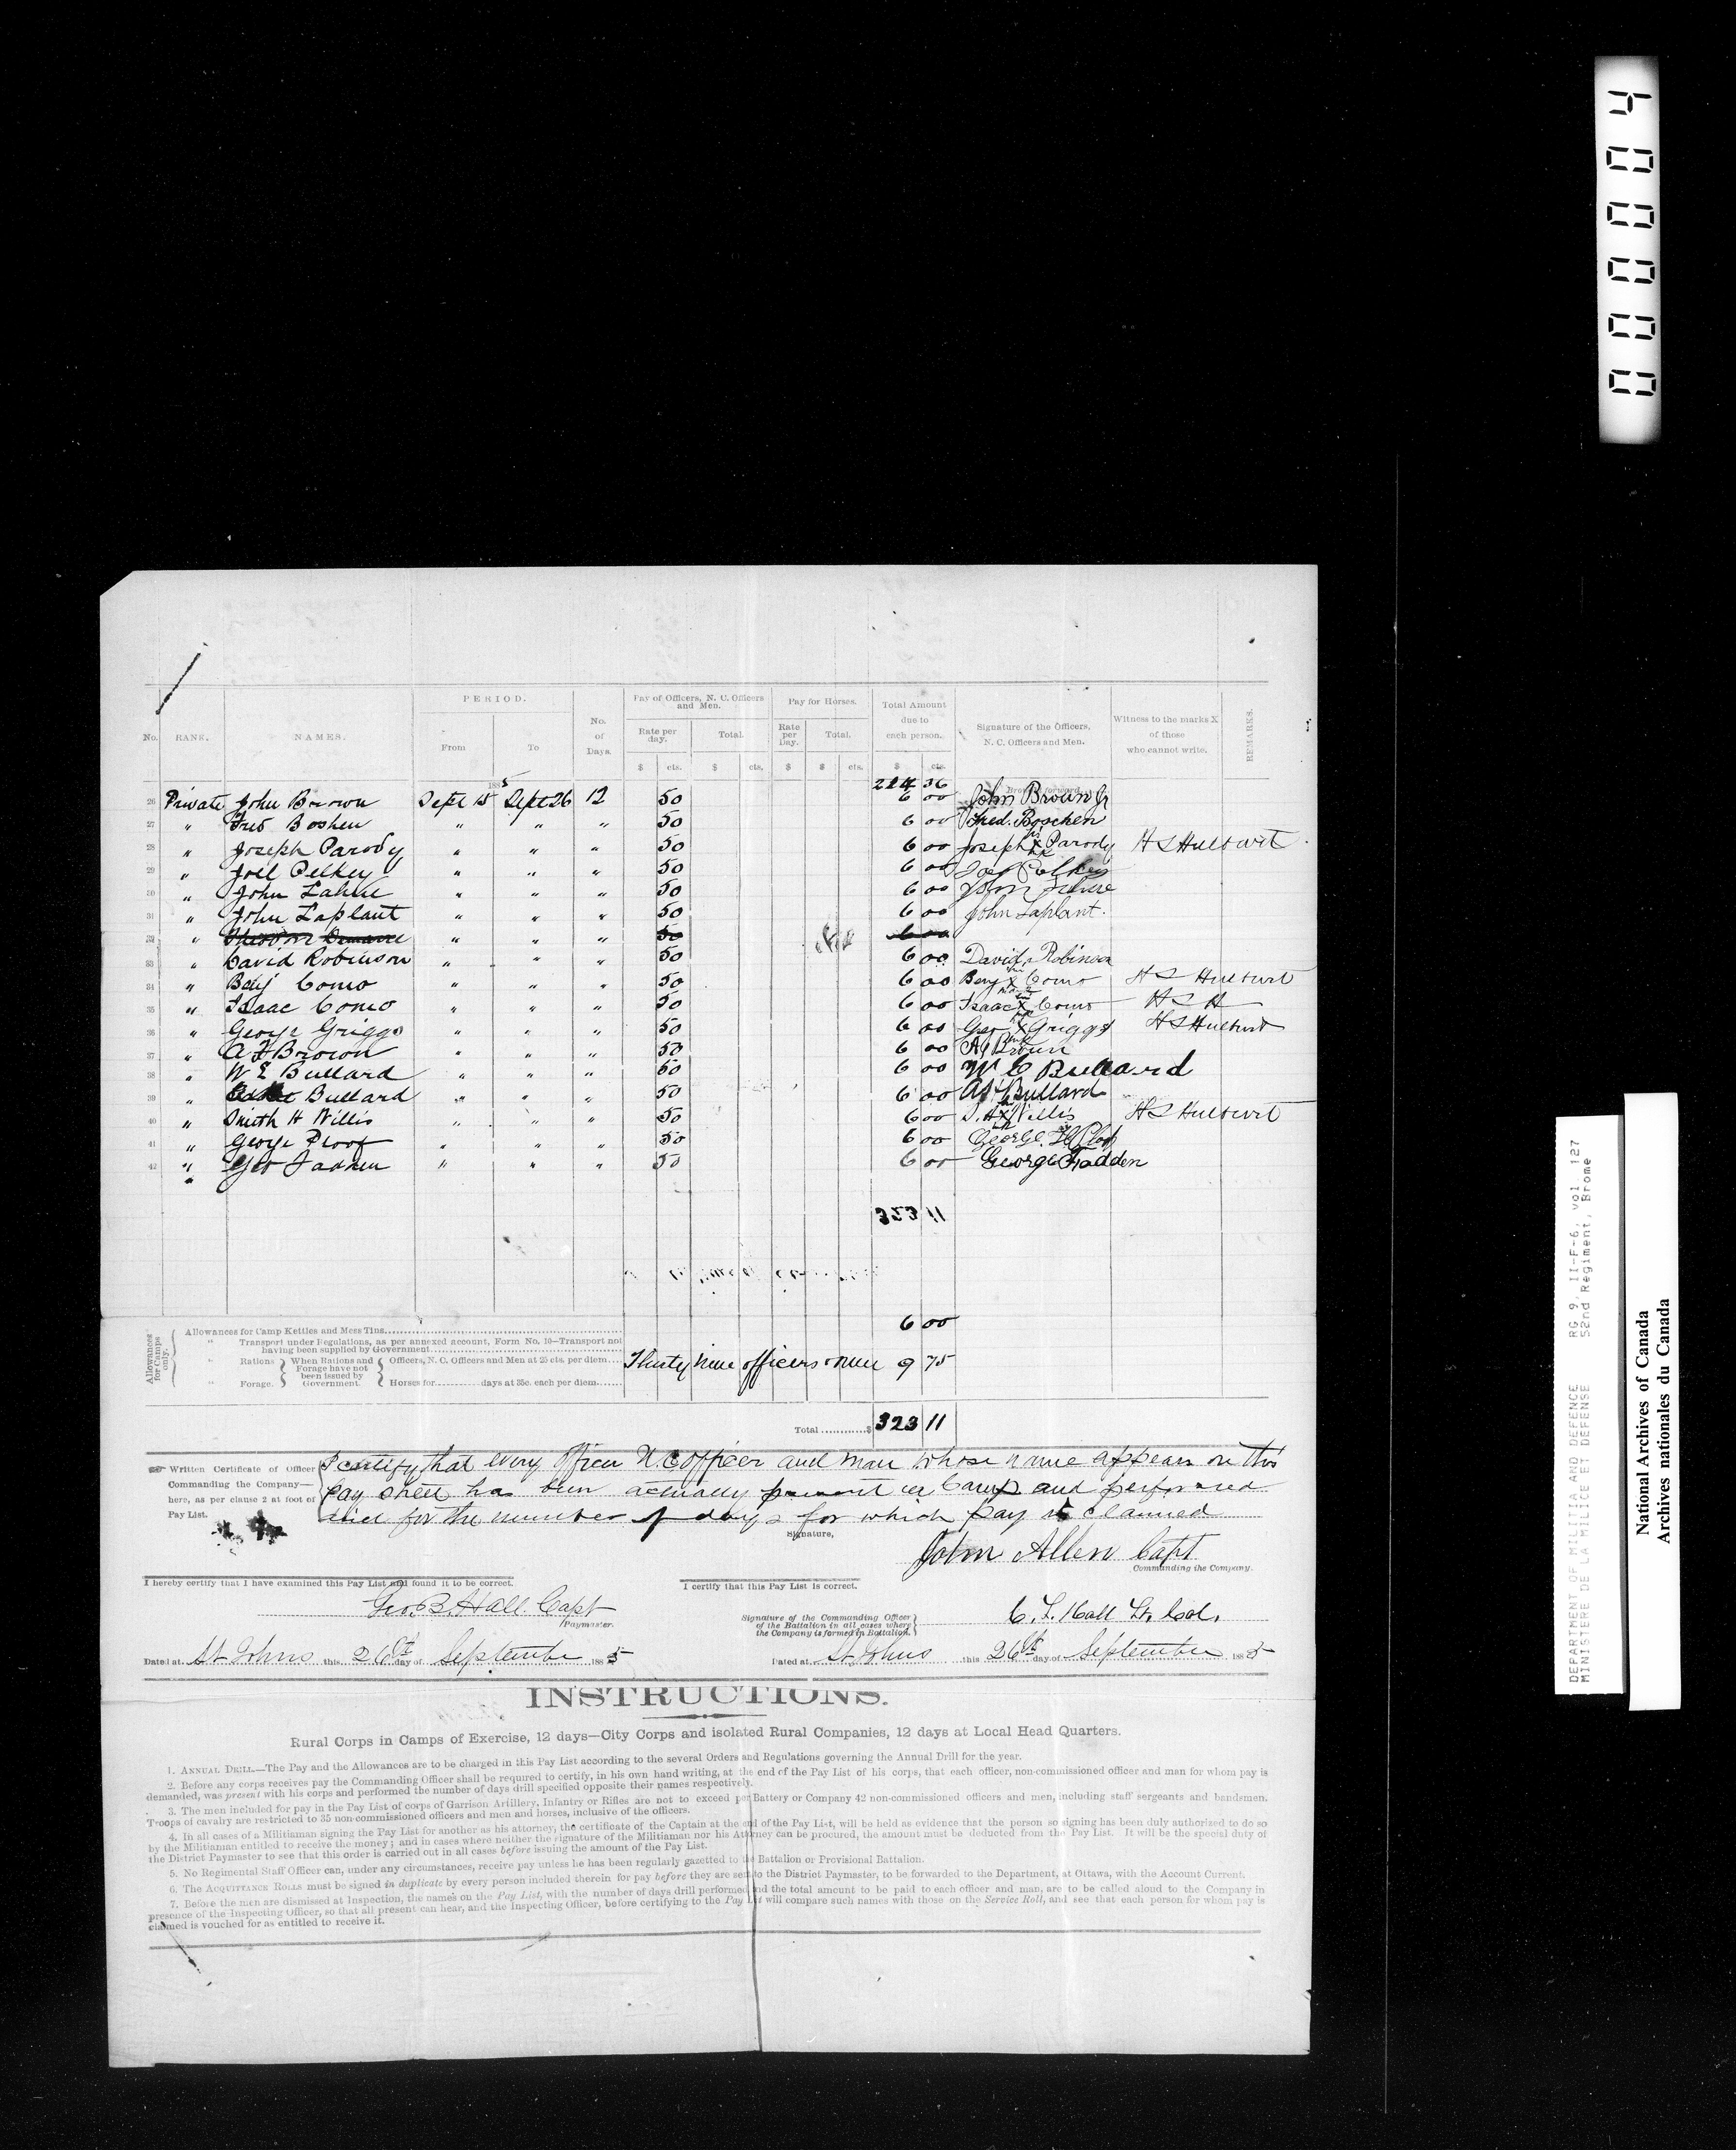 00004
No. RANK. NAMES. PERIOD. From To No. of Days. Pay of Officers, N. C. Officers and Men. Rate per day. Total. Pay for Horses. Rate per Day. Total. Total Amount due to each person. Signature of the Officers, N. C. Officers and Men. Witness to the marks X of those who cannot write. REMARKS.
$ cts. $ cts. $ $ cts. $ cts.
1885 214 36 Brought forward
26 Private John Brown Sept 15 Sept 26 12 50 6 00 John Brown Jr
27 " Fred Boshen " " " 50 6 00 Fred. Boschen
28 " Joseph Parody " " " 50 6 00 Joseph his X mk Parody H S Hulburt
29 " Joel Pelkey " " " 50 6 00 Joel Pelkey
30 " John Lahue " " " 50 6 00 John Lahue
31 " John Laplant " " " 50 6 00 John Laplant.
32 " " " " 50 6 00
33 " David Robinson " " " 50 6 00 David Robinson
34 " Benj Como " " " 50 6 00 Benj X Como H S Hulburt
35 " Isaac Como " " " 50 6 00 Isaac X Como H S H
36 " George Griggs " " " 50 6 00 Geo X Griggs H S Hulburt
37 " A F Brown " " " 50 6 00 A F Brown
38 " W E Bullard " " " 50 6 00 W E Bullard
39 " Bullard " " " 50 6 00 Bullard
40 " Smith H Willis " " " 50 6 00 S. H X Willis H S Hulburt
41 " George Proof " " " 50 6 00 George
42 " Geo Fadden " " " 50 6 00 George Fadden
"
323 11
Allowances for Camps only.
Allowances for Camp Kettles and Mess Tins 6 00
" Transport under Regulations, as per annexed account, Form No. 10—Transport not having been supplied by Government
" Rations When Rations and Forage have not been issued by Government. Officers, N. C. Officers and Men at 25 cts. per diem Thirty nine officers & men 9 75
" Forage. Horses for days at 35c. each per diem
Total $ 323 11
Written Certificate of Officer Commanding the Company—here, as per clause 2 at foot of Pay List.
I certify that every Officer N C officer and man whose name appears on this
Pay sheet has been actually present in Camp and performed
drill for the number of days for which pay is claimed
Signature,
John Allen Capt
Commanding the Company.
I hereby certify that I have examined this Pay List and found it to be correct.
I certify that this Pay List is correct.
Geo. B. Hall. Capt
Paymaster.
Signature of the Commanding Officer of the Battalion in all cases where the Company is formed in Battalion.
C. L. Hall Lt. Col.
Dated at St Johns this 26th day of September 1885
Dated at St Johns this 26th day of September 1885
INSTRUCTIONS.
Rural Corps in Camps of Exercise, 12 days—City Corps and isolated Rural Companies, 12 days at Local Head Quarters.
1. ANNUAL DRILL.—The Pay and the Allowances are to be charged in this Pay List according to the several Orders and Regulations governing the Annual Drill for the year.
2. Before any corps receives pay the Commanding Officer shall be required to certify, in his own hand writing, at the end of the Pay List of his corps, that each officer, non-commissioned officer and man for whom pay is
demanded, was present with his corps and performed the number of days drill specified opposite their names respectively.
3. The men included for pay in the Pay List of corps of Garrison Artillery, Infantry or Rifles are not to exceed per Battery or Company 42 non-commissioned officers and men, including staff sergeants and bandsmen.
Troops of cavalry are restricted to 35 non-commissioned officers and men and horses, inclusive of the officers.
4. In all cases of a Militiaman signing the Pay List for another as his attorney; the certificate of the Captain at the end of the Pay List, will be held as evidence that the person so signing has been duly authorized to do so
by the Militiaman entitled to receive the money; and in cases where neither the signature of the Militiaman nor his Attorney can be procured, the amount must be deducted from the Pay List. It will be the special duty of
the District Paymaster to see that this order is carried out in all cases before issuing the amount of the Pay List.
5. No Regimental Staff Officer can, under any circumstances, receive pay unless he has been regularly gazetted to the Battalion or Provisional Battalion.
6. The ACQUITTANCE ROLLS must be signed in duplicate by every person included therein for pay before they are sent to the District Paymaster, to be forwarded to the Department, at Ottawa, with the Account Current.
7. Before the men are dismissed at Inspection, the names on the Pay List, with the number of days drill performed and the total amount to be paid to each officer and man, are to be called aloud to the Company in
presence of the Inspecting Officer, so that all present can hear, and the Inspecting Officer, before certifying to the Pay List will compare such names with those on the Service Roll, and see that each person for whom pay is
claimed is vouched for as entitled to receive it.
DEPARTMENT OF MILITIA AND DEFENCE RG 9, II-F-6, vol. 127
MINISTERE DE LA MILICE ET DEFENSE 52nd Regiment, Brome
National Archives of Canada
Archives nationales du Canada